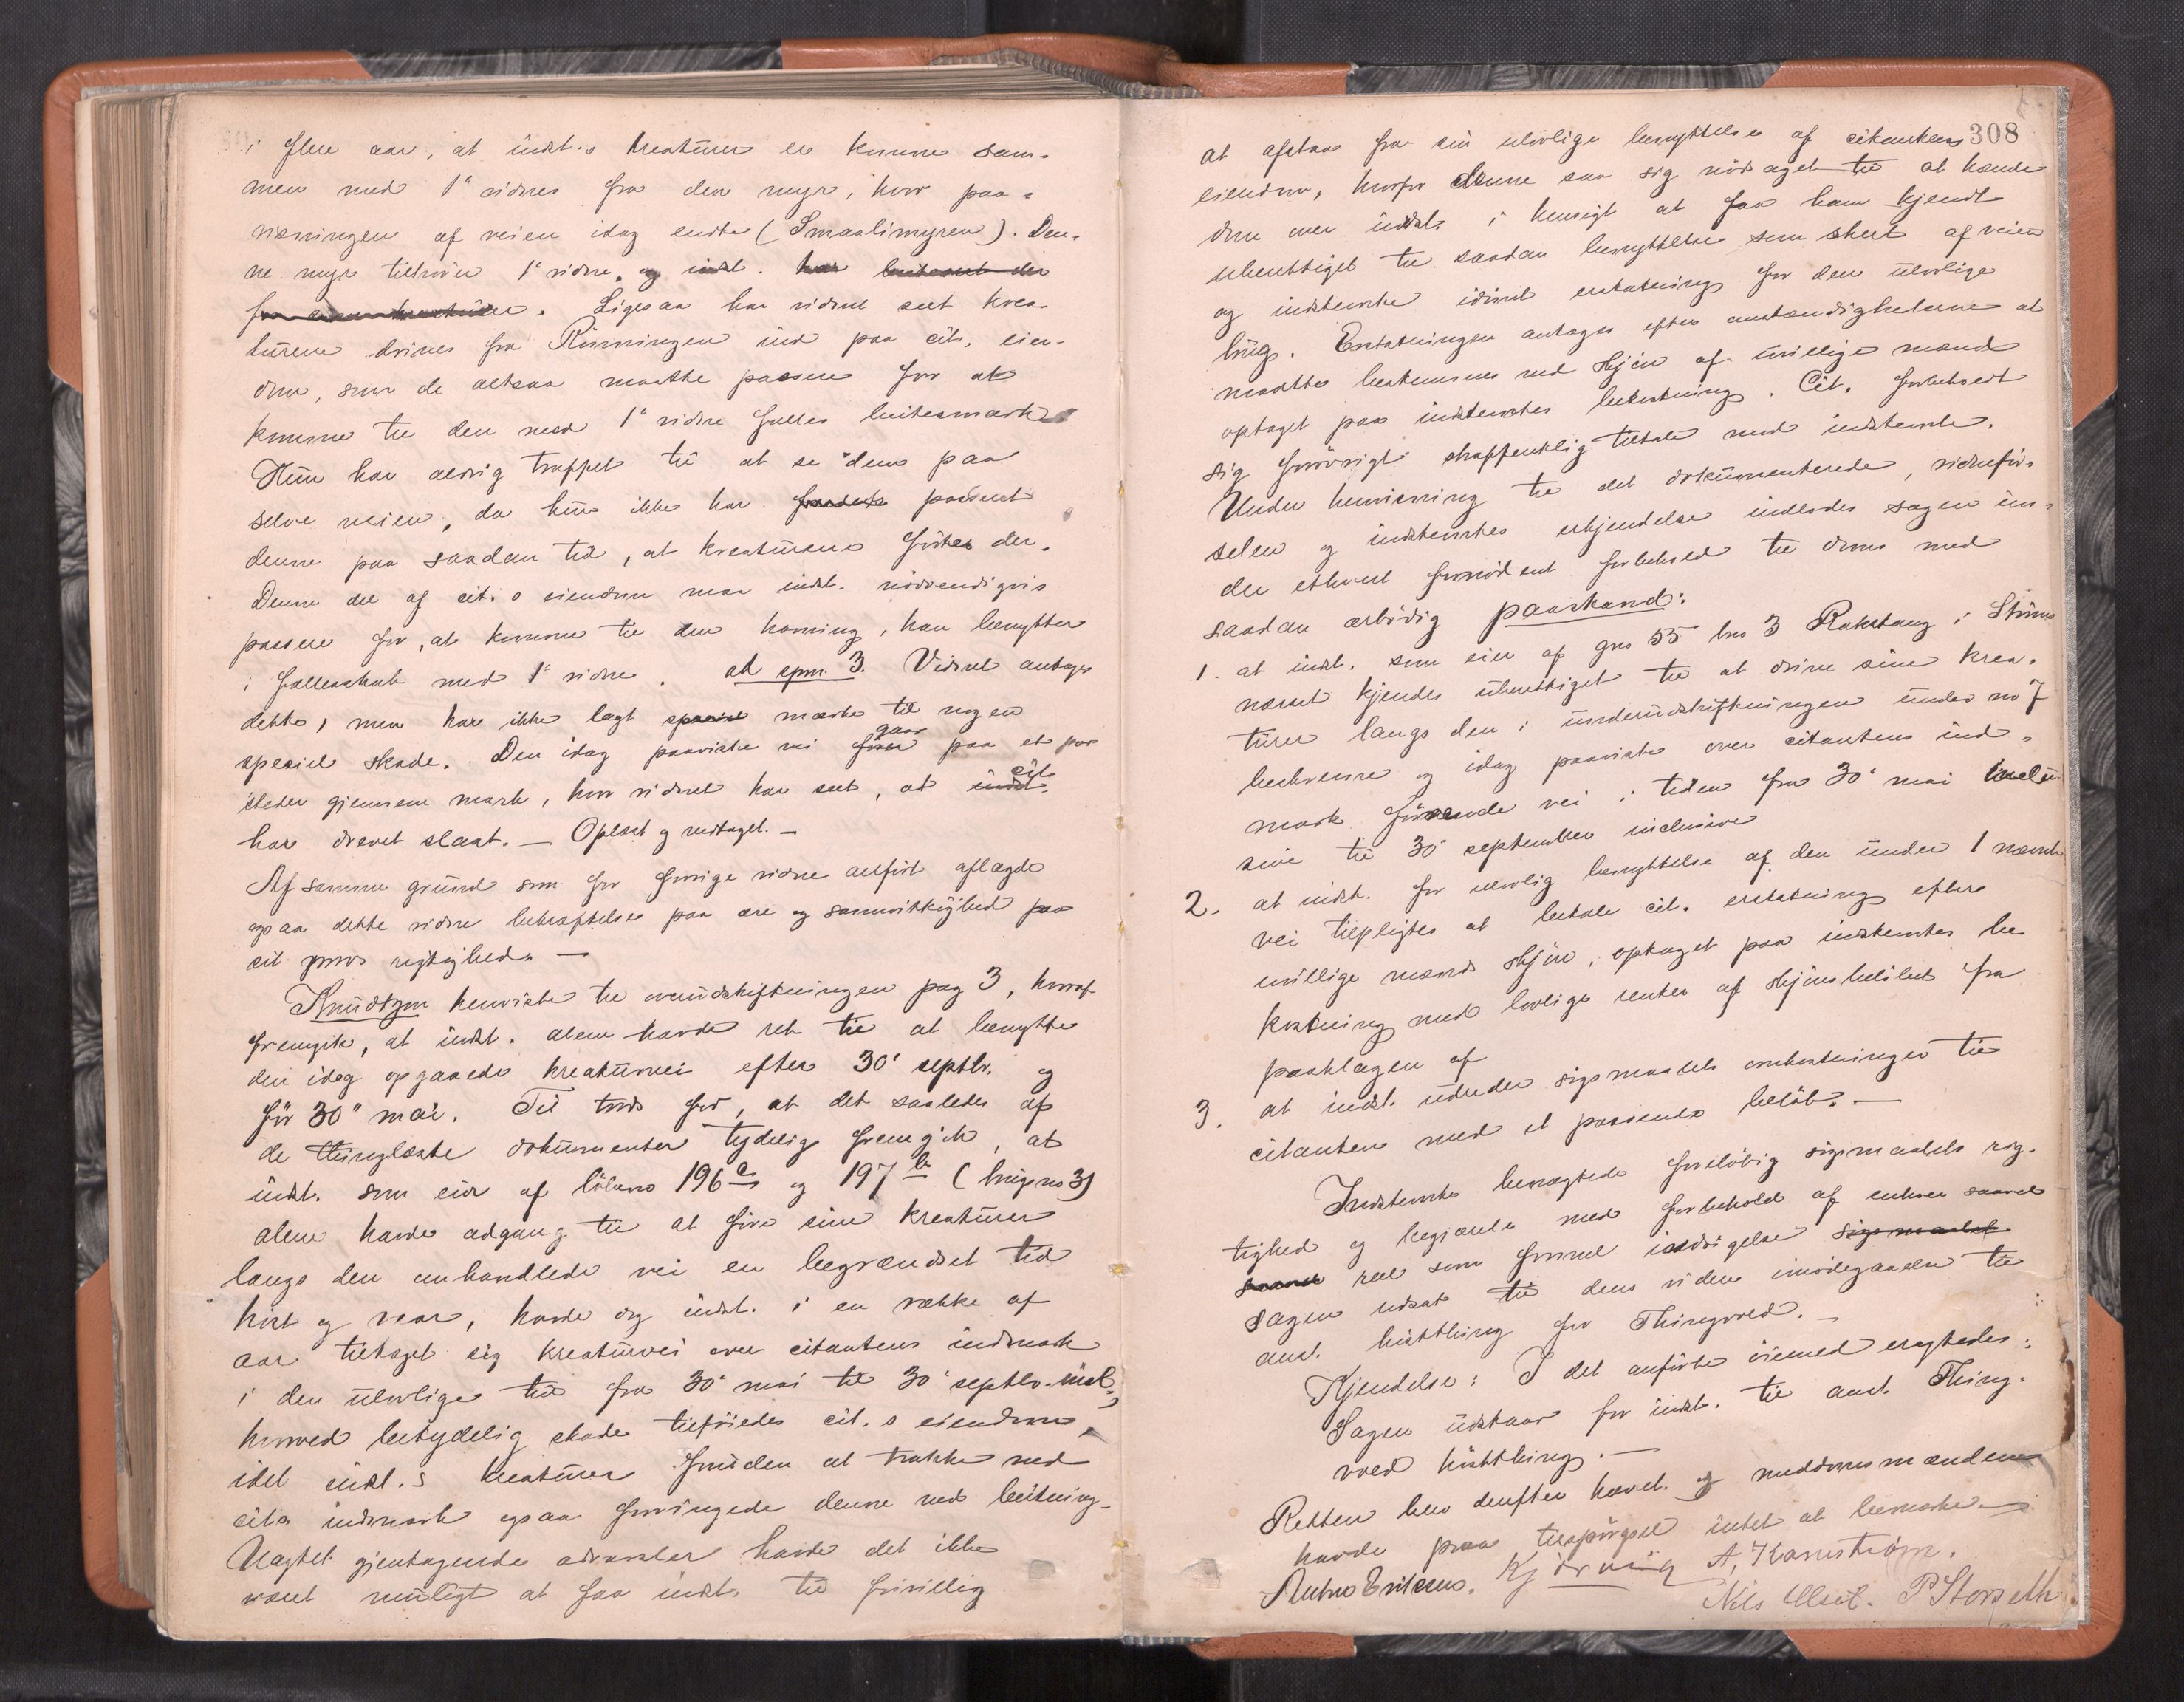 i flere aar, at indst.s kreaturer er komne sam-
men med 1ᵉ vidnes fra den myr, hvor paa-
visningen af veien idag endte (Smaalimyren). Den-
ne myr tilhører 1ᵉ vidne, og indst. har beitesret der
for sine kreaturer. Ligesaa har vidnet seet krea-
turene drives fra Rønningen ind paa cits. eien-
dom, som de altsaa maatte passere for at
komme til den med 1ᵉ vidne fælles beitesmark
Hun har aldrig truffet til at se dem paa
selve veien, da hun ikke har passeret
denne paa saadan tid, at kreaturene føres der.
Denne del af cit.s eiendom maa indst. nødvendigvis
passere for, at komme til den havning, han benytter
i fællesskab med 1ᵉ vidne. ad spm. 3. Vidnet antager
dette, men har ikke lagt speciel mærke til nogen
speciel skade. Den idag paaviste vei gaar paa et par
steder gjennem mark, hvor vidnet har seet, at cit.
har drevet slaat. — Oplæst og vedtaget. —
Af samme grund som for forrige vidne anført aflagde
ogsaa dette vidne bekræftelse paa ære og samvittighed paa
sit provs rigtighed. —
Knudtzon henviste til overudskiftningen pag 3, hvoraf
fremgik, at indst. alene havde ret til at benytte
den idag opgaaede kreaturvei efter 30' septbr. og
før 30" mai. Til trods for, at det saaledes af
de thinglæste dokumenter tydelig fremgik, at
indst. som eier af løbeno 196ᵃ og 197ᵇ (brugsno 3)
alene havde adgang til at føre sine kreaturer
langs den omhandlede vei en begrændset tid
høst og vaar, havde dog indst. i en række af
aar tiltaget sig kreaturvei over citantens indmark
i den ulovlige tid fra 30' mai til 30' septbr. incl.,
hvorved betydelig skade tilføiedes cit.s eiendom,
idet indst.s kreaturer foruden at trakke ned
cits. indmark ogsaa forringede denne ved beitning.
Uagtet gjentagende advarsler havde det ikke
været muligt at faa indst. til frivillig
308
at afstaa fra sin ulovlige benyttelse af citantens
eiendom, hvorfor denne saa sig nødsaget til at hænde
dom over indst. i hensigt at faa ham kjendt
uberettiget til saadan benyttelse som skeet af veien
og indstevnte idømt erstatning for den ulovlige
brug. Erstatningen antages efter omstændighederne at
maatte bestemmes ved skjøn af uvillige mænd
optaget paa indstevntes bekostning. Cit. forbeholdt
sig forøvrigt straffenklig tiltale mod indstevnte.
Under henvisning til det dokumenterede, vidnefør-
selen og indstevntes erkjendelse indlodes sagen un-
der ethvert fornødent forbehold til doms med
saadan ærbødig paastand:
1. at indst. som eier af gno 55 bno 3 Rakstang i Strin-
næset kjendes uberettiget til at drive sine krea-
turer langs den i underudskiftningen under no 7
beskrevne og idag paaviste over citantens ind-
mark førende vei i tiden fra 30' mai inclu-
sive til 30' september inclusive
2. at indst. for ulovlig benyttelse af den under 1 nævnte
vei tilpligtes at betale cit. erstatning efter
uvillige mænds skjøn, optaget paa indstevntes be
kostning med lovlige renter af skjønsbeløbet fra
paaklagen af
3. at indst. udreder søgsmaalets omkostninger til
citanten med et passende beløb. —
Indstevnte benægtede foreløbig søgsmaalets rig-
tighed og begjærte med forbehold af enhver saavel
reel som formel indsigelse søgsmaalet
sagen udsat til dens videre imødegaaelse til
anst. høstthing for Thingvold. —
Kjendelse: I det anførte øiemed eragtedes:
Sagen udstaar for indst. til anst. Thing-
vold høstthing. —
Retten blev derefter hævet. og meddomsmændene
havde paa tilspørgsel intet at bemærke.
Kjørvig A. Hamstrøm.
Anton Eriksen. Nils Olsel. P Storseth